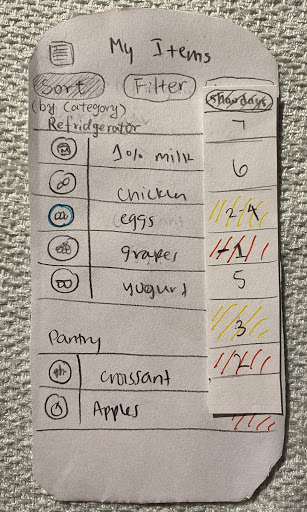 My Items
Sort Filter Show days
(by Category)
Refridgerator 7
1% milk 6
chicken
eggs
grapes -1
yogurt 5
Pantry 3
croissant
Apples